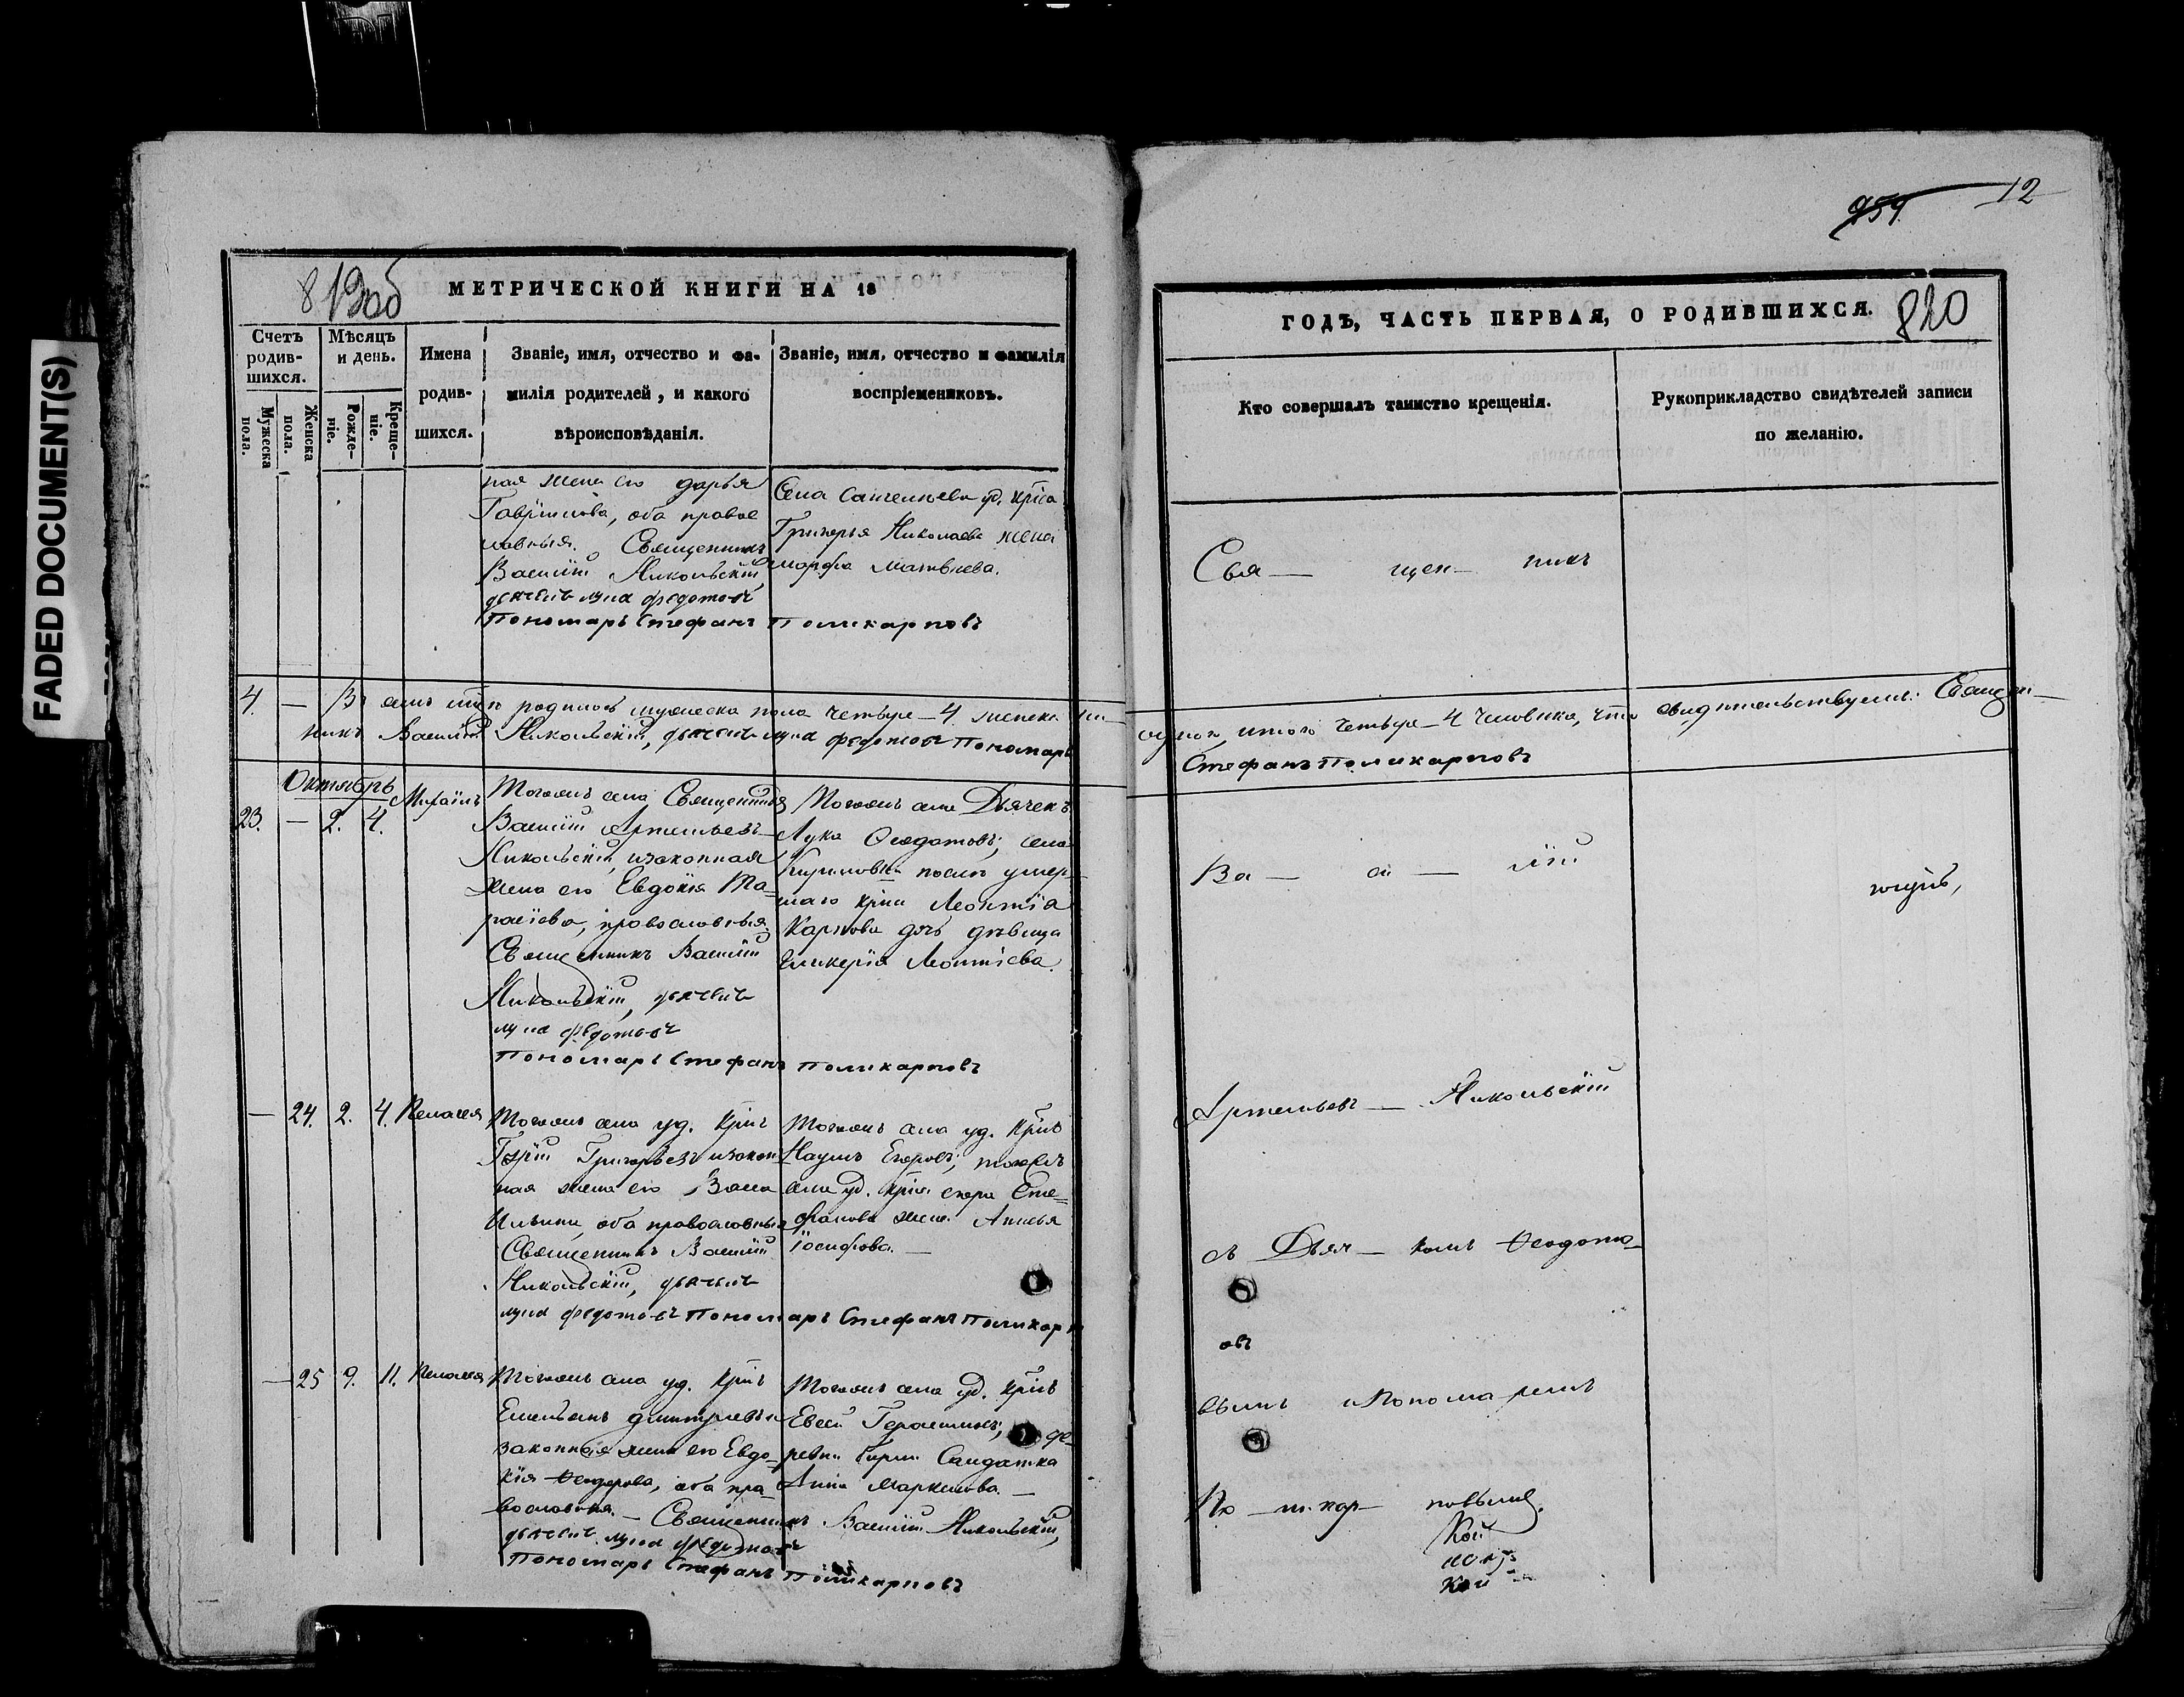 FADED DOCUMENT(S)
819 об
МЕТРИЧЕСКОЙ КНИГИ НА 18
Счетъ родив-шихся.
Мѣсяцъ и день.
Мужеска пола.
Женска пола.
Рожде-ніе.
Креще-ніе.
Имена
родив-
шихся.
Званіе, имя, отчество и фа-
милія родителей, и какого
вѣроисповѣданія.
Званіе, имя, отчество и фамилія
воспріемниковъ.
ная жена его дарья
Гаврилова, оба правос
лавныя. Священникъ
Василій Никольскій,
дьячекъ лука федотовъ
Пономарь Стефанъ Поликарповъ
Села уд. кр̃на
Григорья Николаева жена
марфа матвѣева.
4. — Въ семъ м̃цѣ родилось мужеска пола четыре — 4. женска ни
никъ Василій Никольскій, дьячекъ лука федотовъ Пономарь
Октябрь
23. — 2. 4. Михаилъ
Тогожъ села Священникъ
Василій Артемьевъ
Никольскій, изаконная
жена его Евдокія Та-
расіева, православныя.
Священникъ Василій
Никольскій, дьячекъ
лука федотовъ
Пономарь Стефанъ Поликарповъ
Тогожъ села Дьячекъ
Лука Ѳеодотовъ; села
послѣ умер-
шаго кр̃на Леонтія
Карпова дочь дѣвица
Гликерія Леонтіева.
— 24. 2. 4. Пелагея
Тогожъ села уд. кр̃нъ
Григорьевъ изакон-
ная жена его Васса
Ильина, оба православныя
Священникъ Василій
Никольскій, дьячекъ
лука федотовъ Пономарь Стефанъ Поликарп
Тогожъ села уд. кр̃нъ
Наумъ Егоровъ; тогожъ
села уд. кр̃на егора Сте-
фанова жена Анисья
Іосифова. —
— 25 9. 11. Пелагея
Тогожъ села уд. кр̃нъ
Емельянъ дмитріевъ и
законная жена его Евдо-
кія Ѳеодорова, оба пра-
вославныя. — Священникъ Василій Никольскій,
дьячекъ лука федотовъ
Пономарь Стефанъ Поликарповъ
Тогожъ села уд. кр̃нъ
Евсей Герасимовъ; де-
ревни Солдатка
Анна Маркелова. —
12
954.
820
ГОДЪ, ЧАСТЬ ПЕРВАЯ, О РОДИВШИХСЯ.
Кто совершалъ таинство крещенія.
Рукоприкладство свидѣтелей записи
по желанію.
Свя — щен — никъ
одного, итого четыре — 4 человѣка, что свидѣтельствуемъ: Священ —
Стефанъ Поликарповъ
Ва — си — лій
Артемьевъ — Никольскій
съ Дьяч — комъ Ѳеодото-
овъ
вымъ и Пономаремъ
По — ли-кар — повымъ.